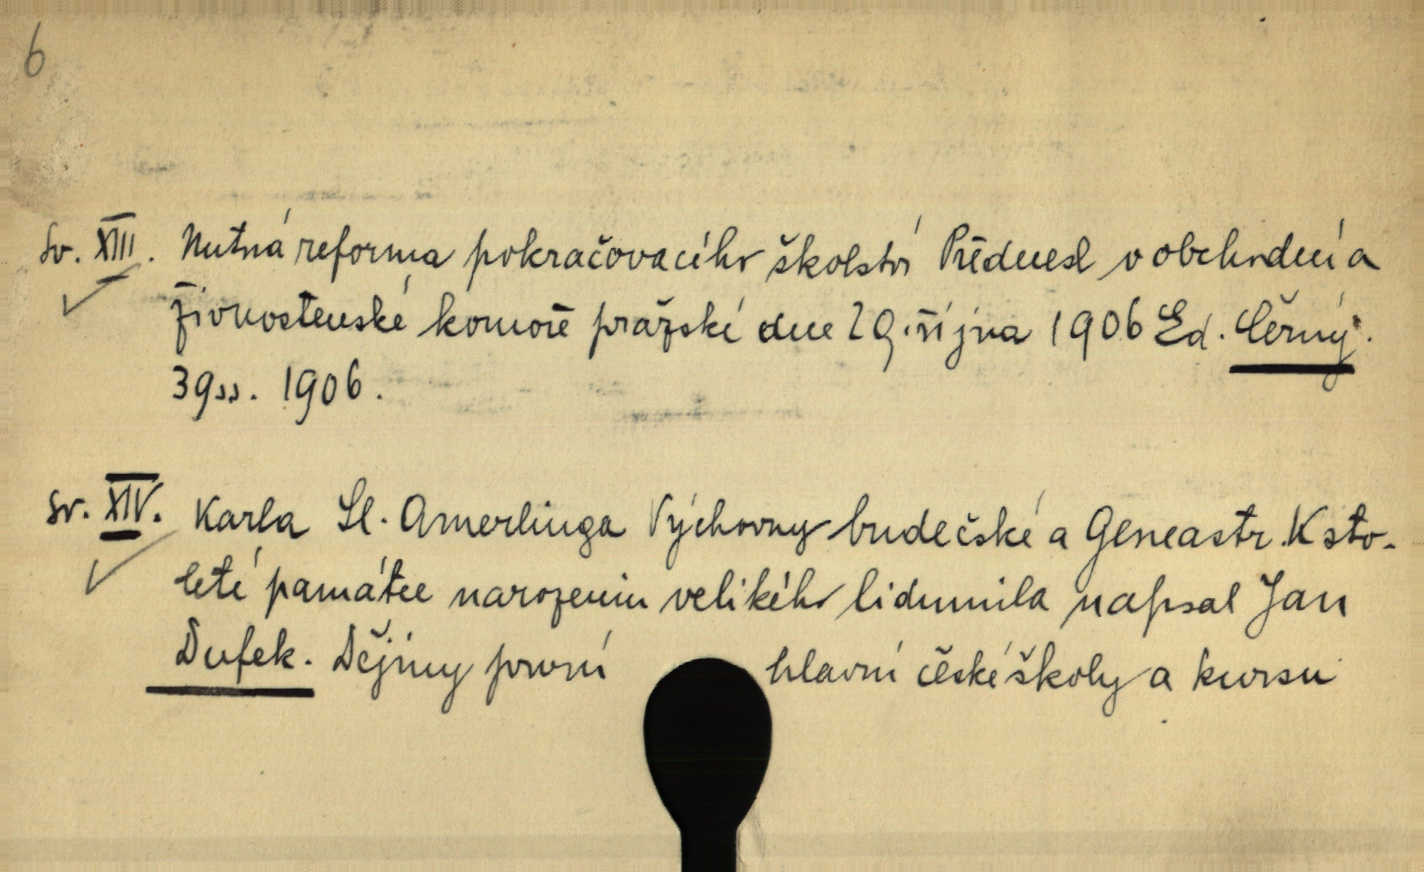 6
Sv. XIII. Nutná reforma pokračovacího školství Přednesl v obchodní a
živnostenské komoře pražské dne 29. října 1906 Ed. Černý.
39 ss. 1906.
Sv. XIV. Karla Sl. Amerlinga Výchovny budečské a Geneastr. K sto-
leté památce narozenin velikého lidumila napsal Jan
Dufek. Dějiny první hlavní české školy a kursu